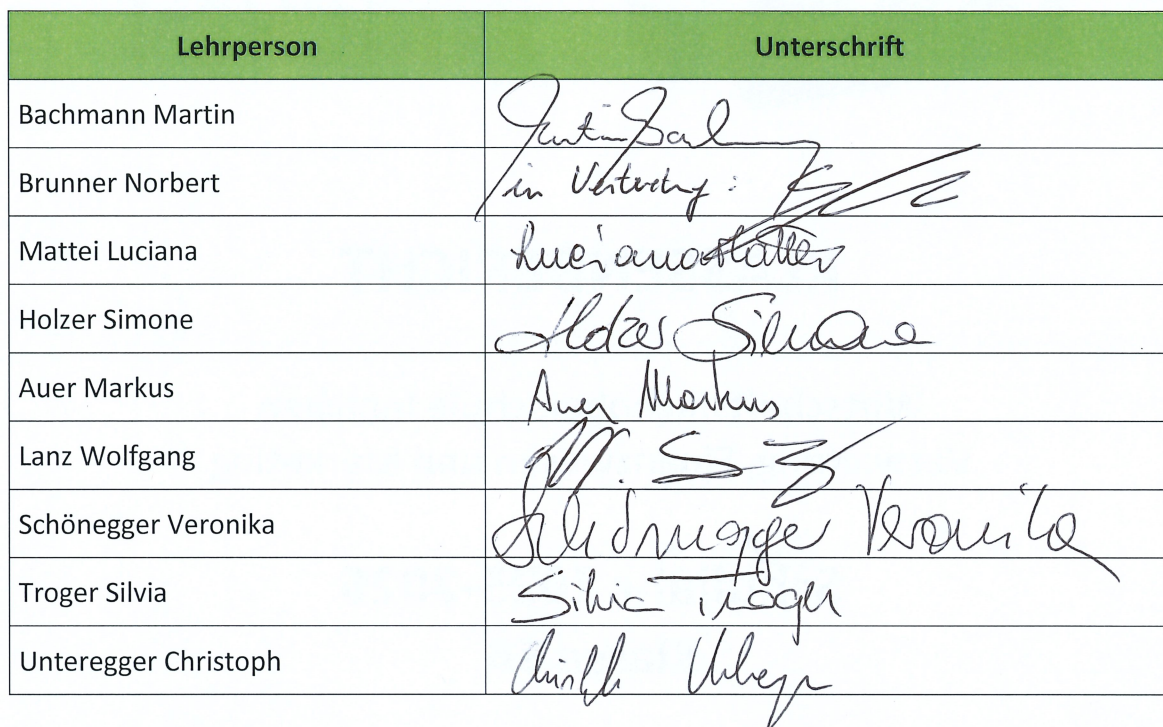 Lehrperson Unterschrift
Bachmann Martin Martin
Brunner Norbert in Vertretung:
Mattei Luciana Luciana Mattei
Holzer Simone Holzer Simone
Auer Markus Auer Markus
Lanz Wolfgang
Schönegger Veronika Schönegger Veronika
Troger Silvia Silvia Troger
Unteregger Christoph Christoph